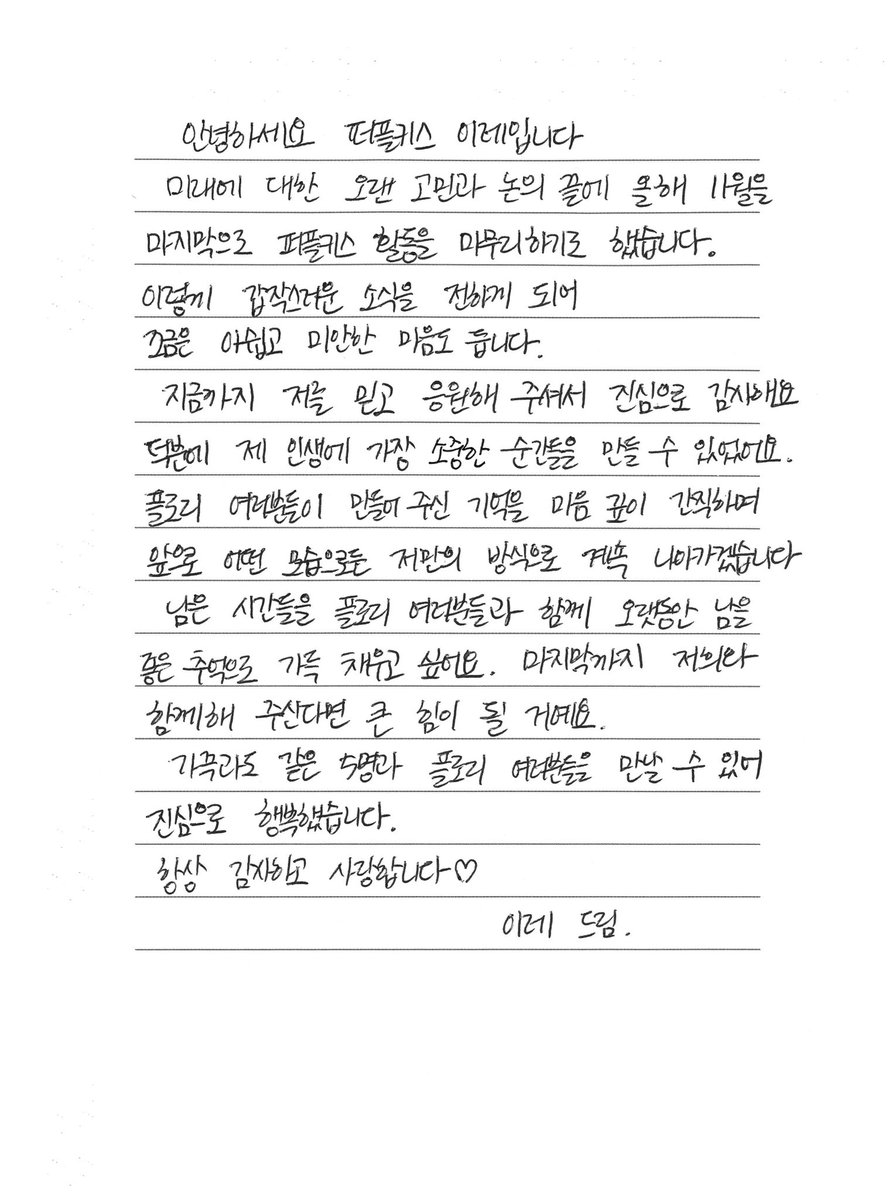 안녕하세요 퍼플키스 이레입니다
미래에 대한 오랜 고민과 논의 끝에 올해 11월을
마지막으로 퍼플키스 활동을 마무리하기로 했습니다.
이렇게 갑작스러운 소식을 전하게 되어
조금은 아쉽고 미안한 마음도 듭니다.
지금까지 저를 믿고 응원해 주셔서 진심으로 감사해요
덕분에 제 인생에 가장 소중한 순간들을 만들 수 있었어요.
플로리 여러분들이 만들어 주신 기억을 마음 깊이 간직하며
앞으로 어떤 모습으로든 저만의 방식으로 계속 나아가겠습니다
남은 시간들을 플로리 여러분들과 함께 오랫동안 남을
좋은 추억으로 가득 채우고 싶어요. 마지막까지 저희와
함께해 주신다면 큰 힘이 될 거예요.
가족라도 같은 5명과 플로리 여러분들을 만날 수 있어
진심으로 행복했습니다.
항상 감사하고 사랑합니다♡
이레 드림.